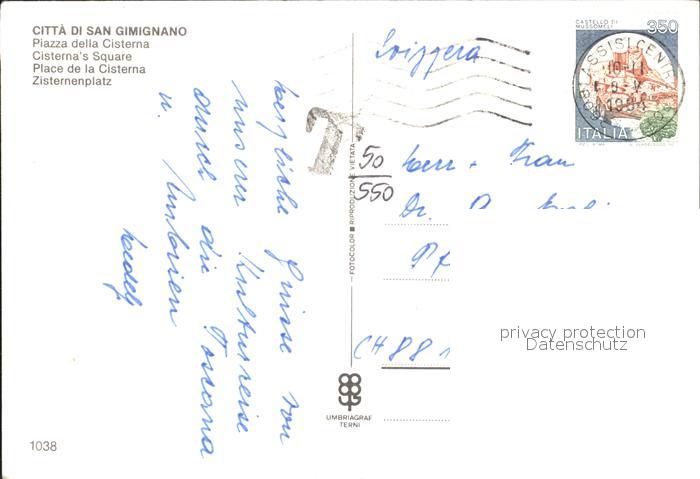 CITTÀ DI SAN GIMIGNANO
Piazza della Cisterna
Cisterna's Square
Place de la Cisterna
Zisternenplatz
herzliche Grüsse von
unserer Kulturreise
durch die Toscana
u. Umbrien
1038
FOTOCOLOR ■ RIPRODUZIONE VIETATA
UMBRIAGRAF
TERNI
T
50
550
Svizzera
CASTELLO DI
MUSSOMELI
350
ITALIA
ASSISI CENTRO
Herr + Frau
Dr.
CH 88
privacy protection
Datenschutz